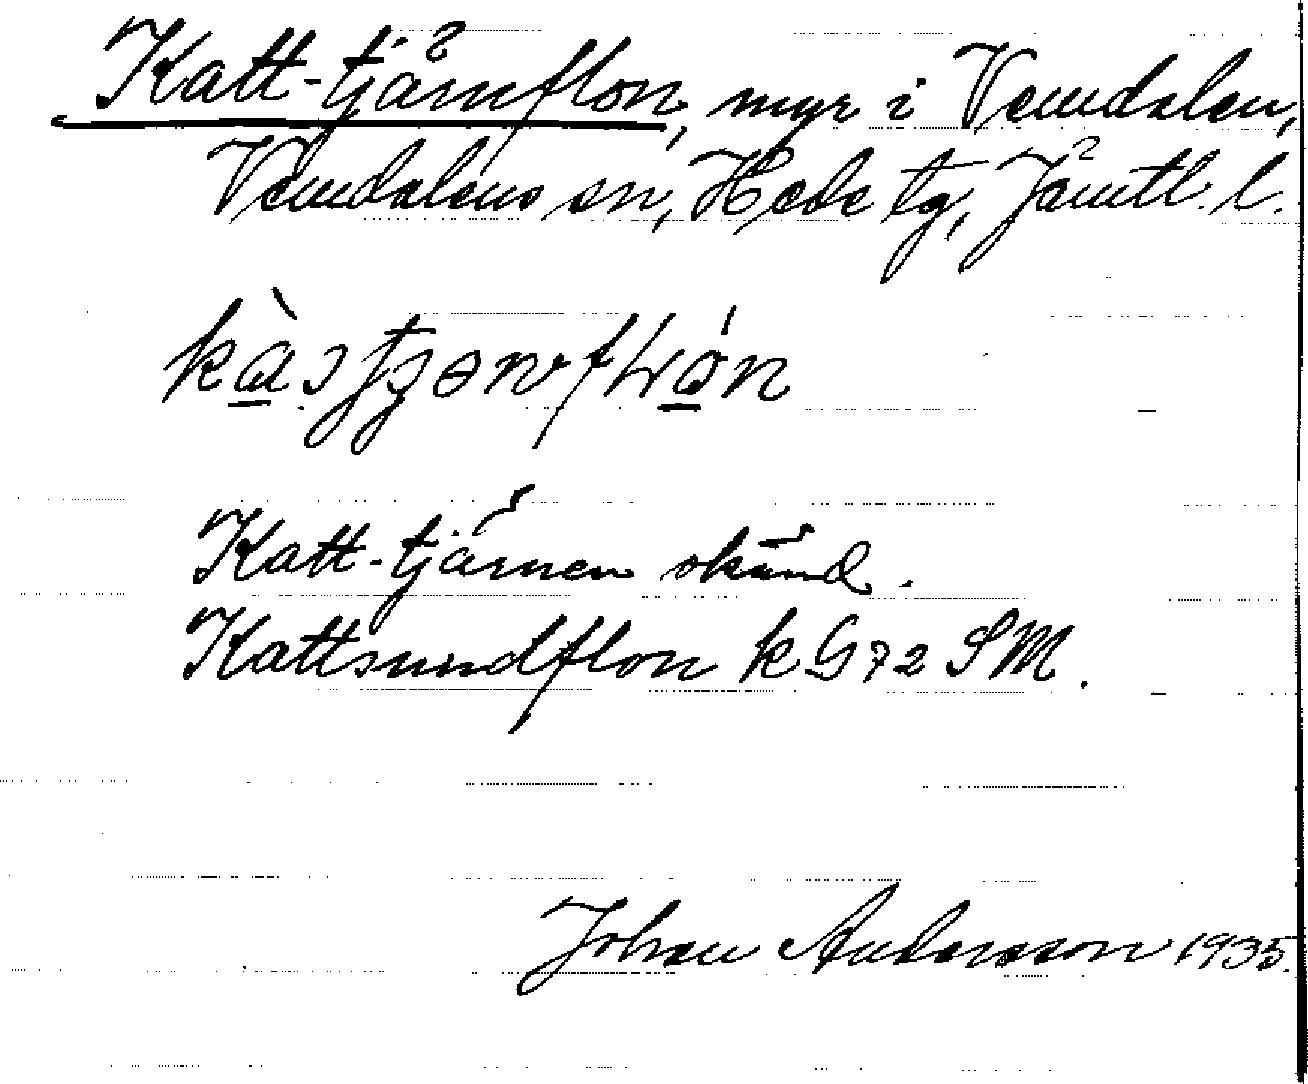 Katt-tjärnflon, myr i Vemdalen,
Vemdalens sn, Hede tg, Jämtl. l.
Katt-tjärnen okänd.
Kattsundflon k G72 SM.
Johan Andersson 1935.